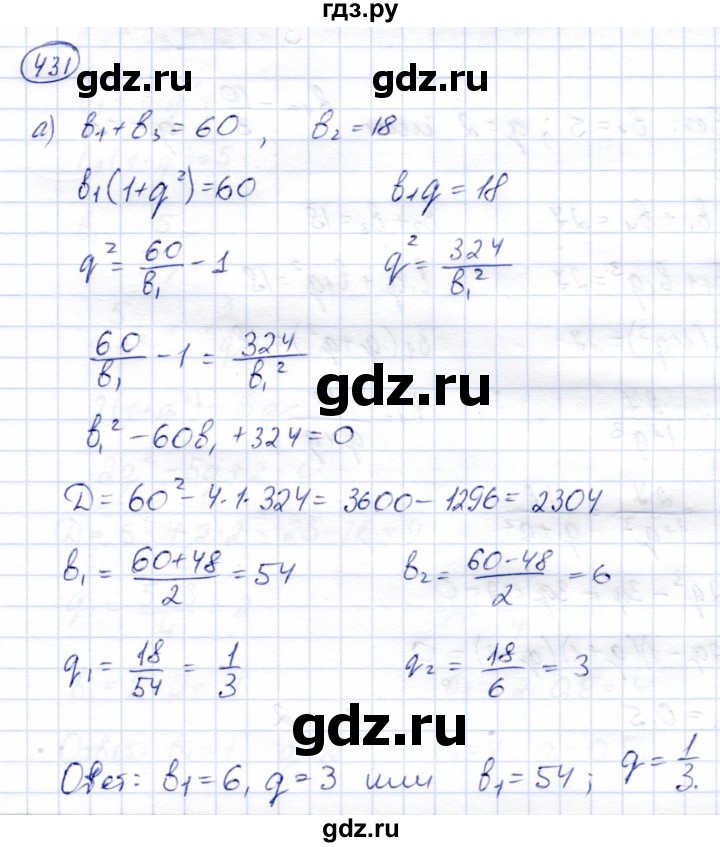 гдз.ру
431
gdz.ru gdz.ru
а) b₁ + b₃ = 60, b₂ = 18
b₁(1+q²) = 60 b₁q = 18
q² = 60/b₁ - 1 q² = 324/b₁²
60/b₁ - 1 = 324/b₁²
gdz.ru
b₁² - 60b₁ + 324 = 0
D = 60² - 4·1·324 = 3600 - 1296 = 2304
b₁ = (60+48)/2 = 54 b₂ = (60-48)/2 = 6
q₁ = 18/54 = 1/3 q₂ = 18/6 = 3
gdz.ru
Ответ: b₁ = 6, q = 3 или b₁ = 54; q = 1/3.
gdz.ru